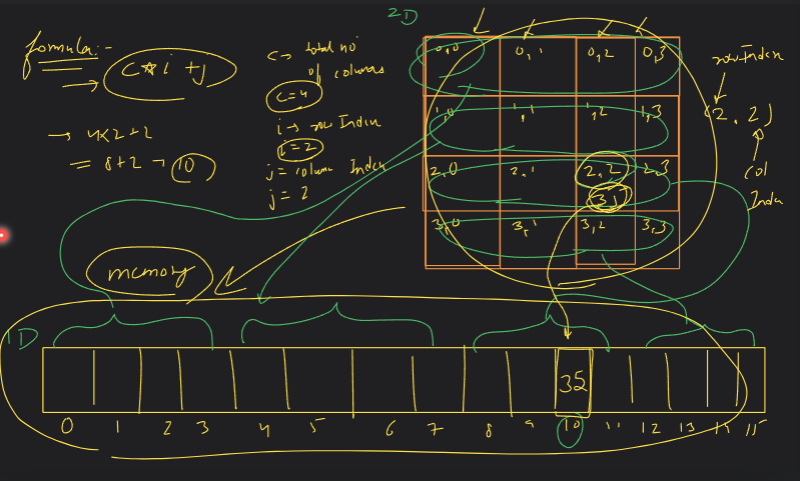 2D
formula:-
→ c*i+j
c → total no
of columns
c=4
i → row Index
i=2
j= column Index
j= 2
→ 4x2+2
= 8+2 → 10
0,0 0,1 0,2 0,3
1,0 1,1 1,2 1,3
2,0 2,1 2,2 2,3
3,0 3,1 3,2 3,3
row Index
(2,2)
col
Index
memory
1D
35
0 1 2 3 4 5 6 7 8 9 10 11 12 13 14 15